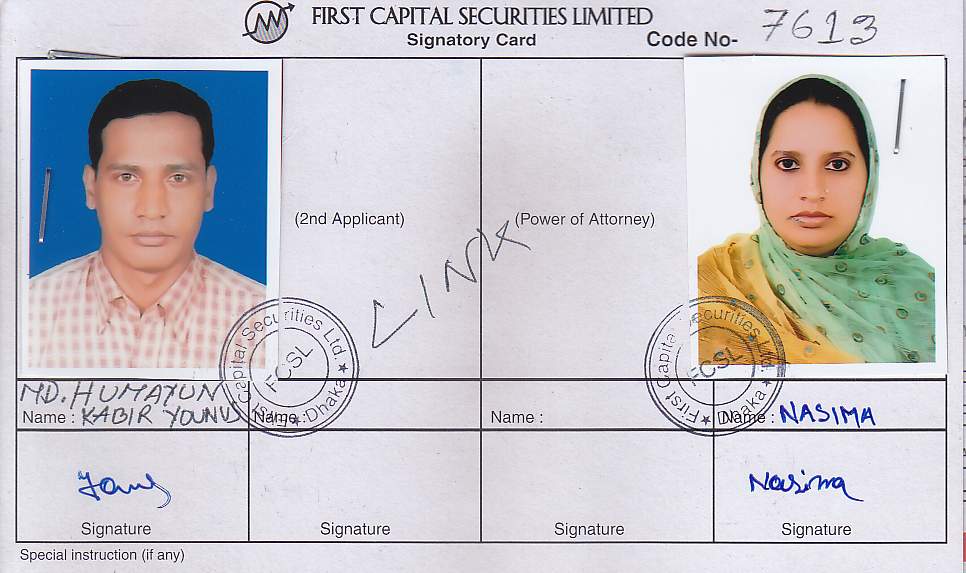 FIRST CAPITAL SECURITIES LIMITED
Signatory Card
Code No- 7613
(2nd Applicant)
(Power of Attorney)
LINK
First Capital Securities Ltd. ★ Dhaka ★
FCSL
First Capital Securities Ltd. ★ Dhaka ★
FCSL
MD. HUMAYUN
Name : KABIR YOUNUS
Name :
Name :
Name : NASIMA
Nasima
Signature
Signature
Signature
Signature
Special instruction (if any)